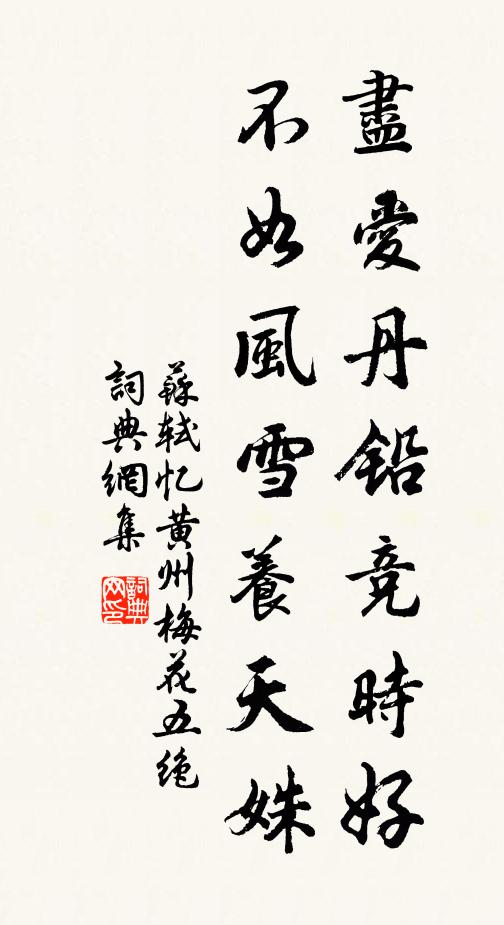 盡愛丹鉛竞時好
不如風雪養天姝
蘇轼忆黄州梅花五绝
詞典網集
詞典網印